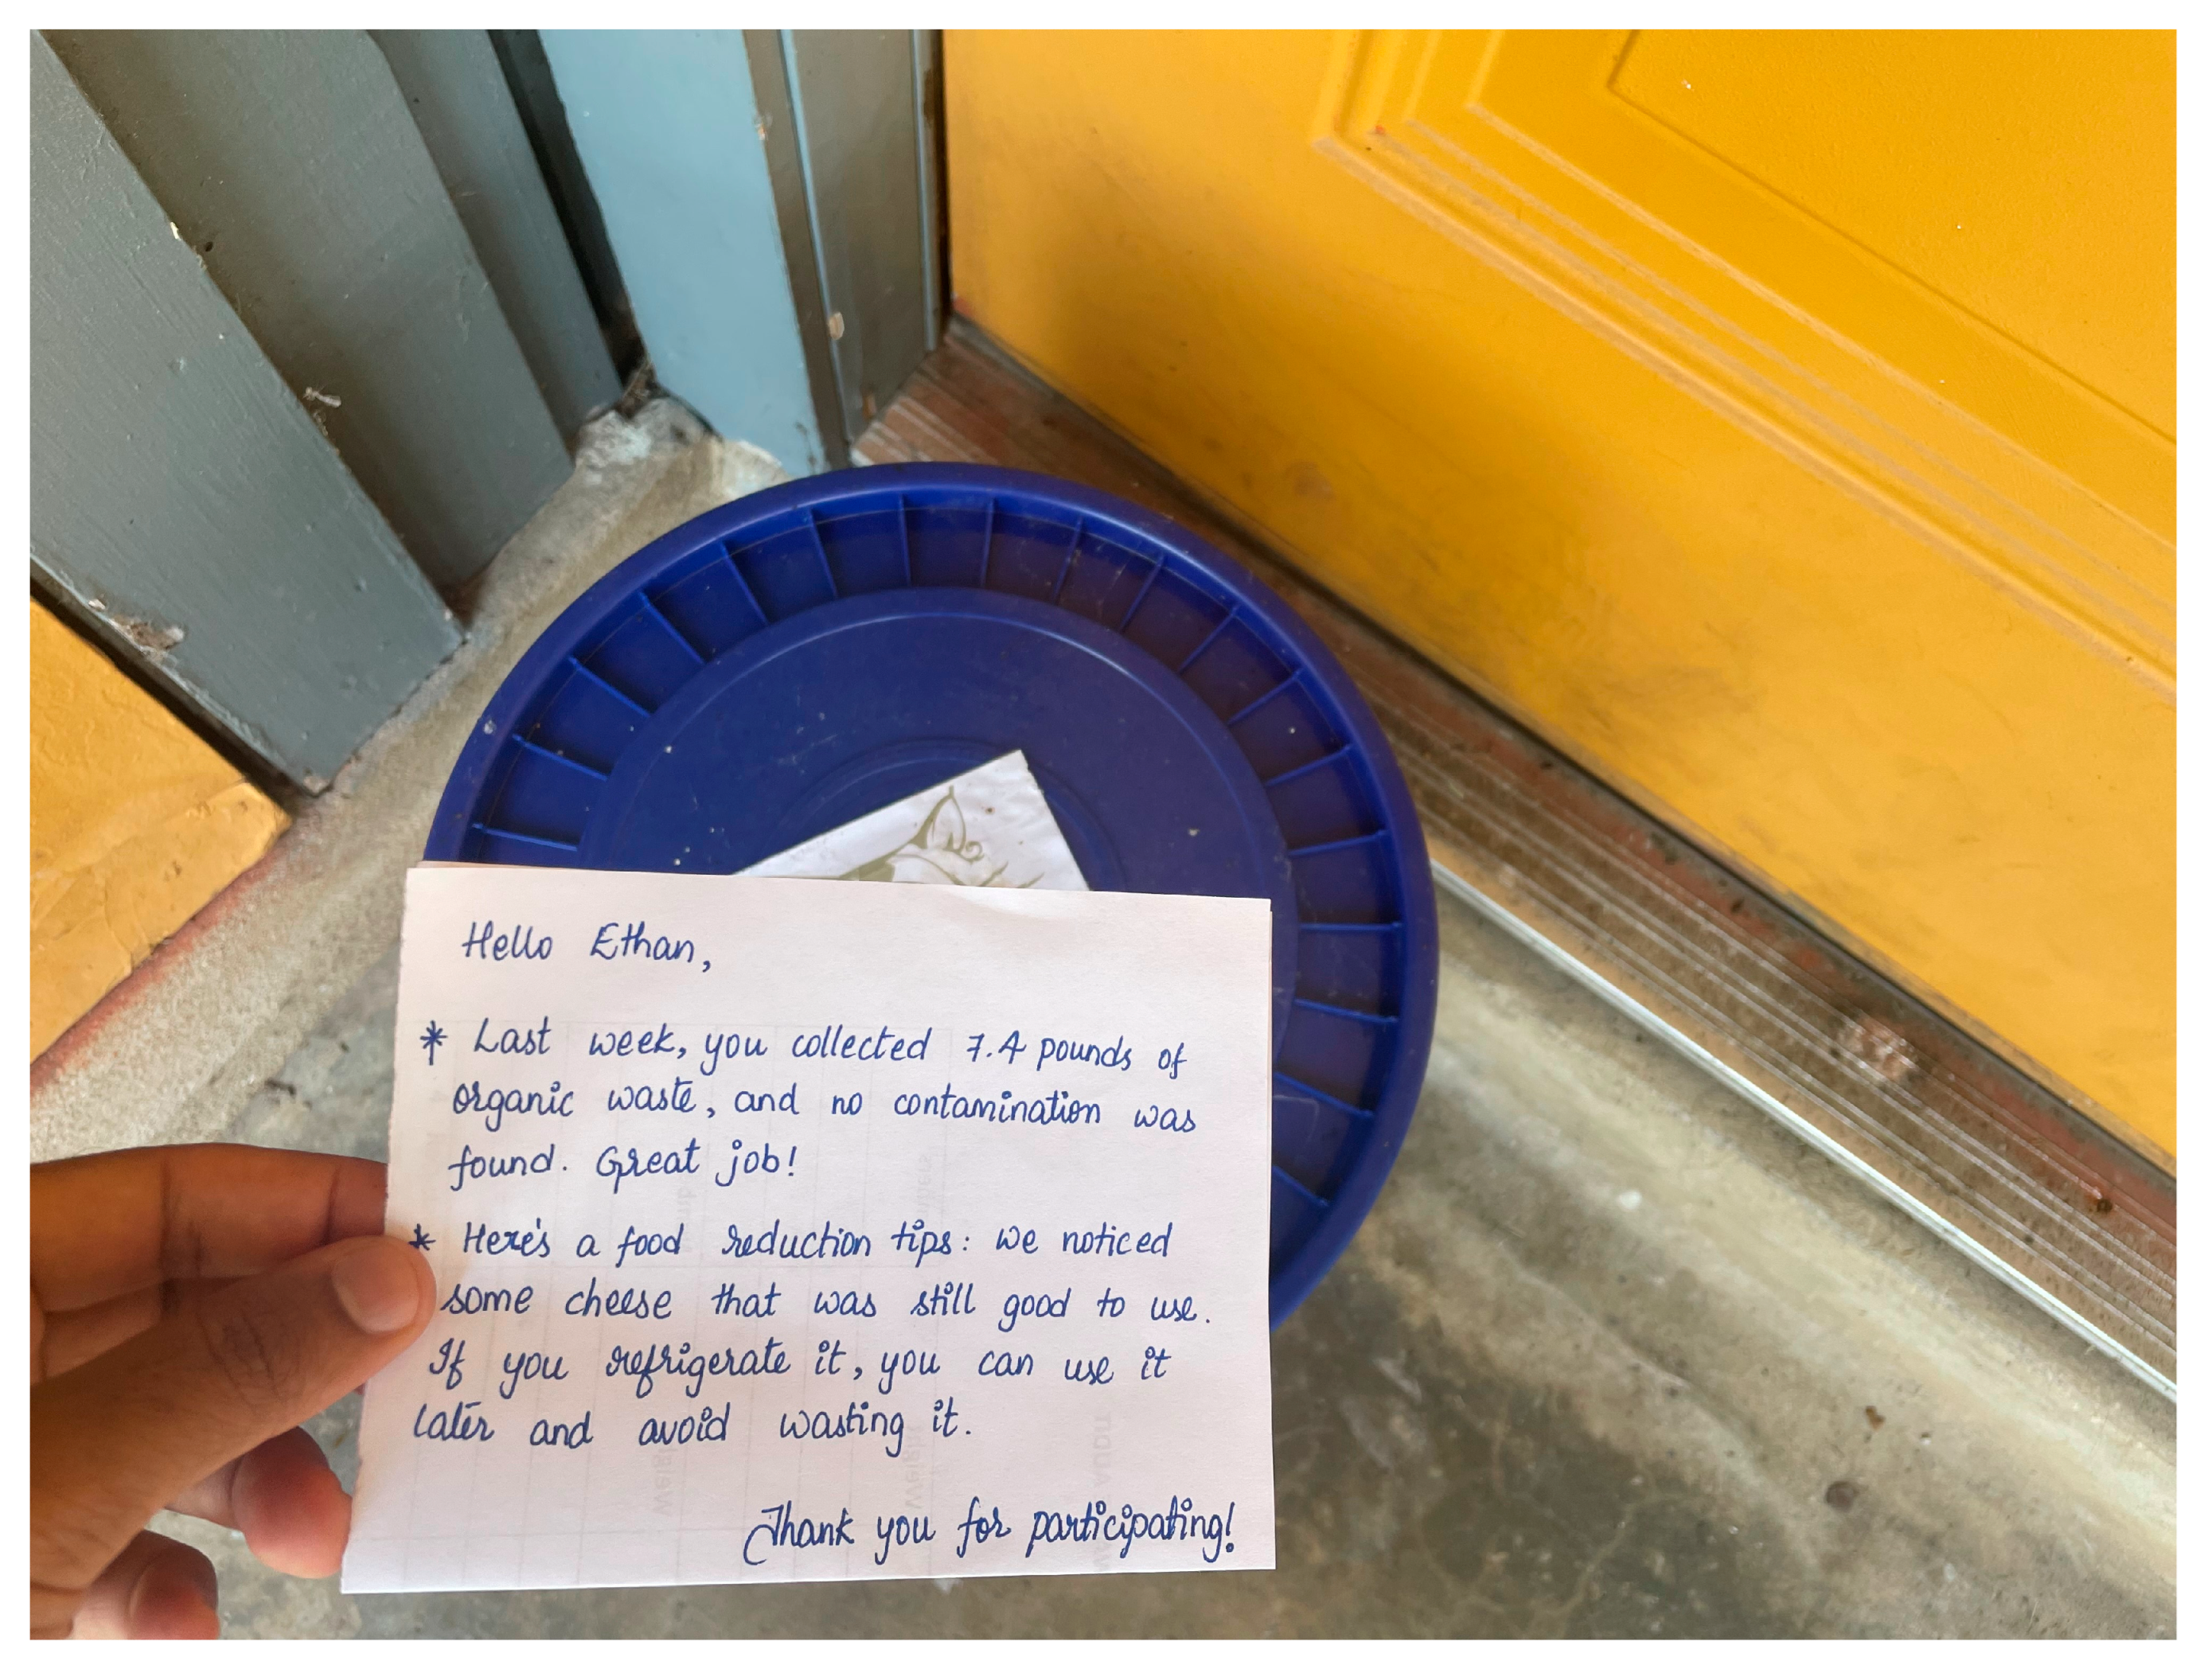 Hello Ethan,
* Last week, you collected 7.4 pounds of
organic waste, and no contamination was
found. Great job!
* Here's a food reduction tips: we noticed
some cheese that was still good to use.
If you refrigerate it, you can use it
later and avoid wasting it.
Thank you for participating!